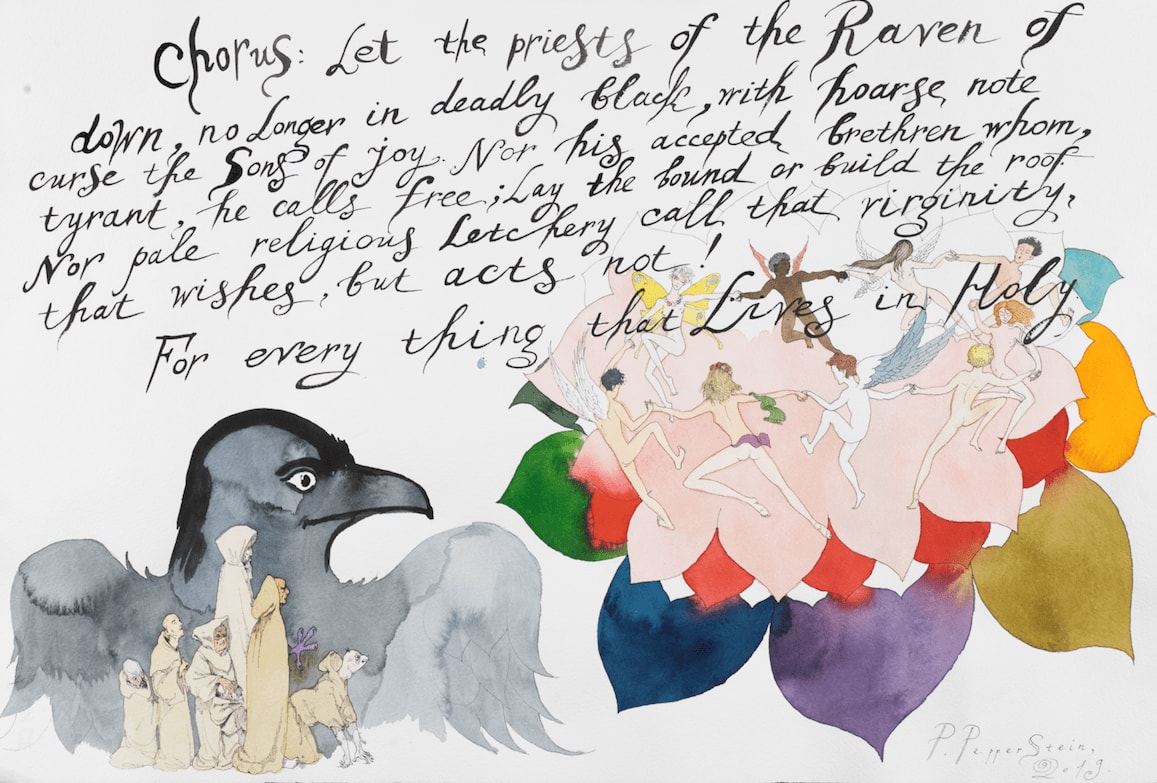 Chorus: Let the priests of the Raven of
down, no longer in deadly black, with hoarse note
curse the Sons of joy. Nor his accepted brethren whom,
tyrant, he calls free; Lay the bound or build the roof
Nor pale religious Letchery call that virginity,
that wishes, but acts not!
For every thing that Lives in Holy
P. PepperStein,
2019.